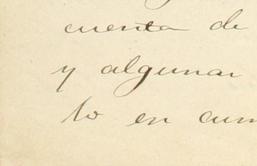 cuenta de
y algunar
to en cum